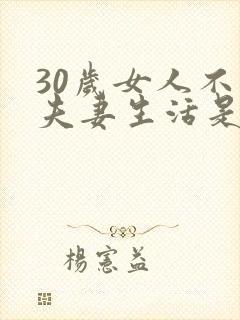 30歲女人不
夫妻生活是
楊憲益